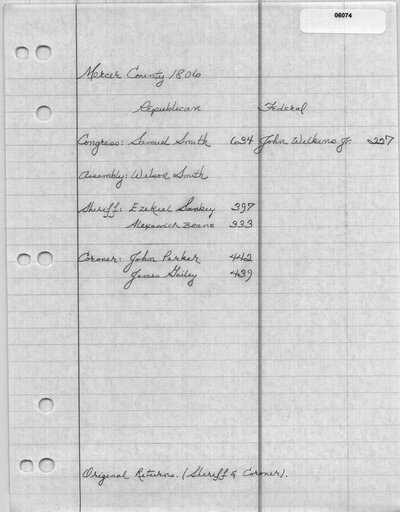 06074
Mercer County 1806
Republican Federal
Congress: Samuel Smith 634 John Wilkins Jr. 227
Assembly: Wilson Smith
Sheriff: Ezekiel Sankey 397
Alexander Beans 333
Coroner: John Parker 442
James Gailey 439
Original Returns. (Sheriff & Coroner).